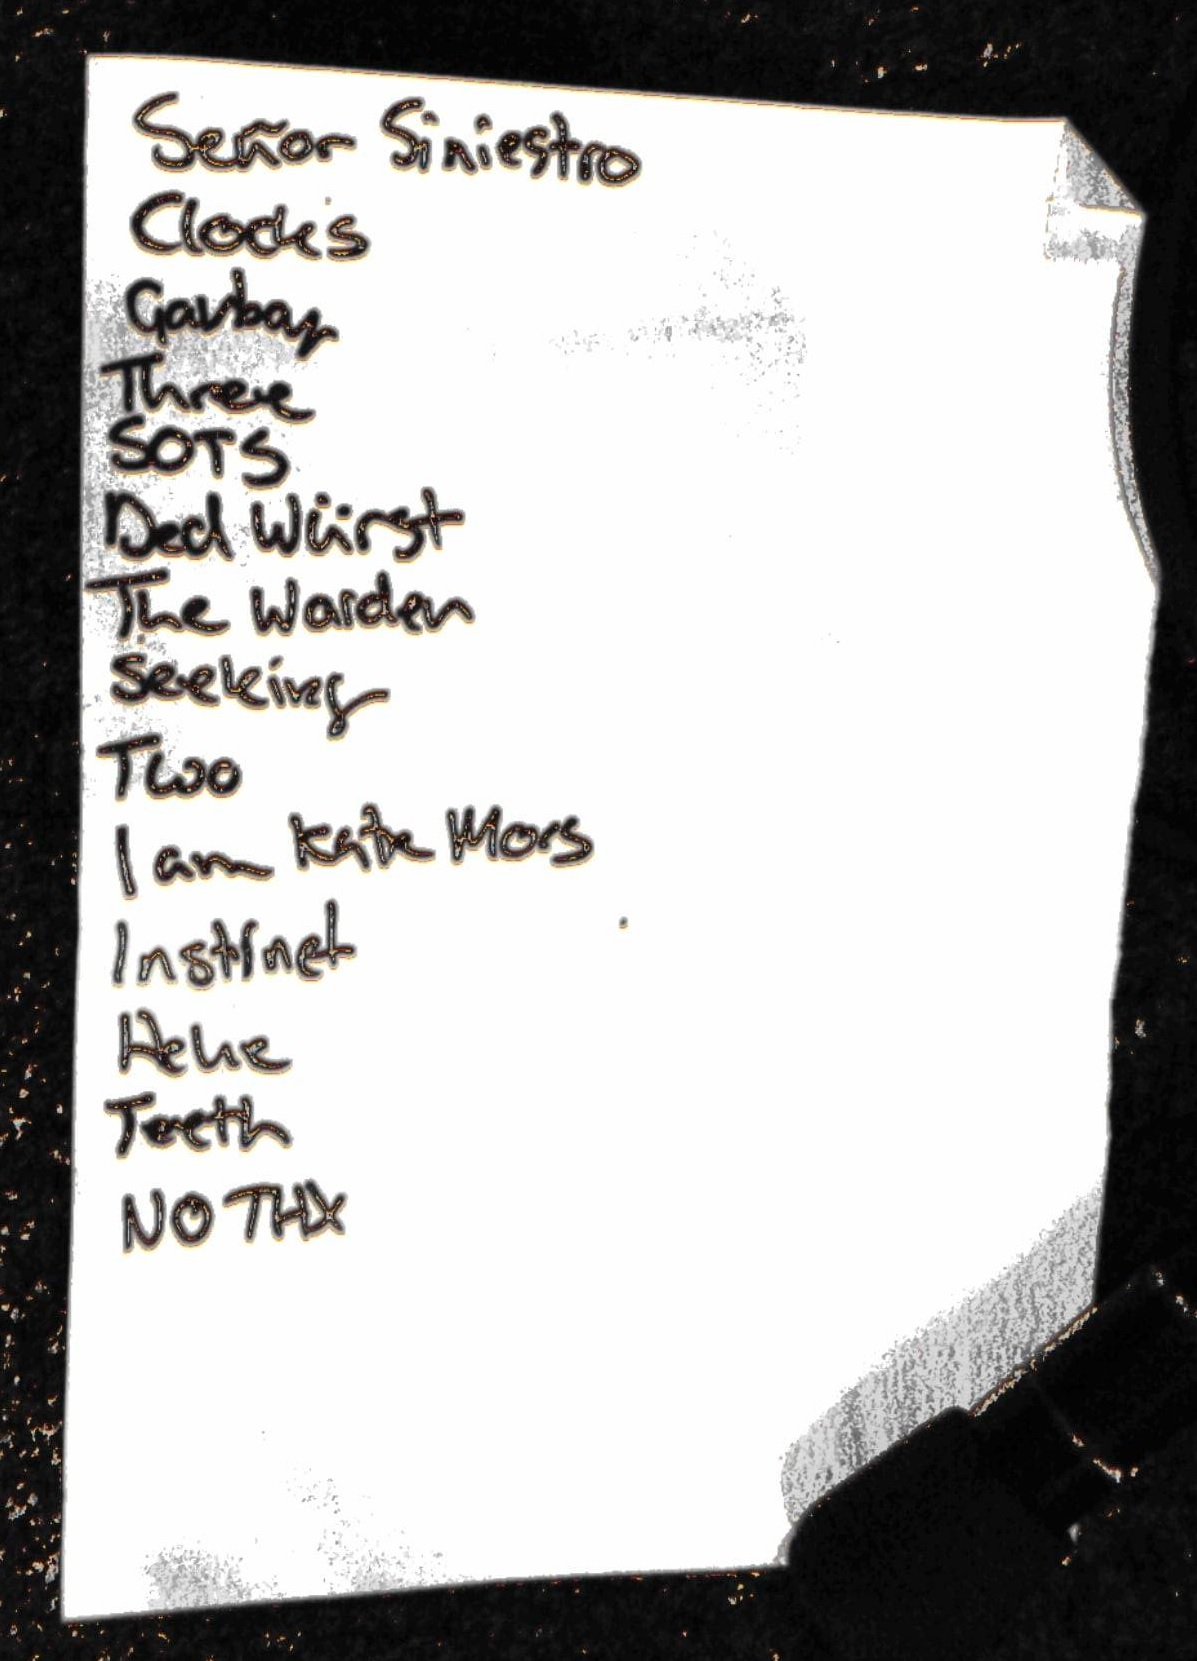 Señor Siniestro
Clocks
Three
SOTS
Ded Würst
The Warden
Seeking
Two
I am Kate Mors
Instinct
Teeth
NO THX